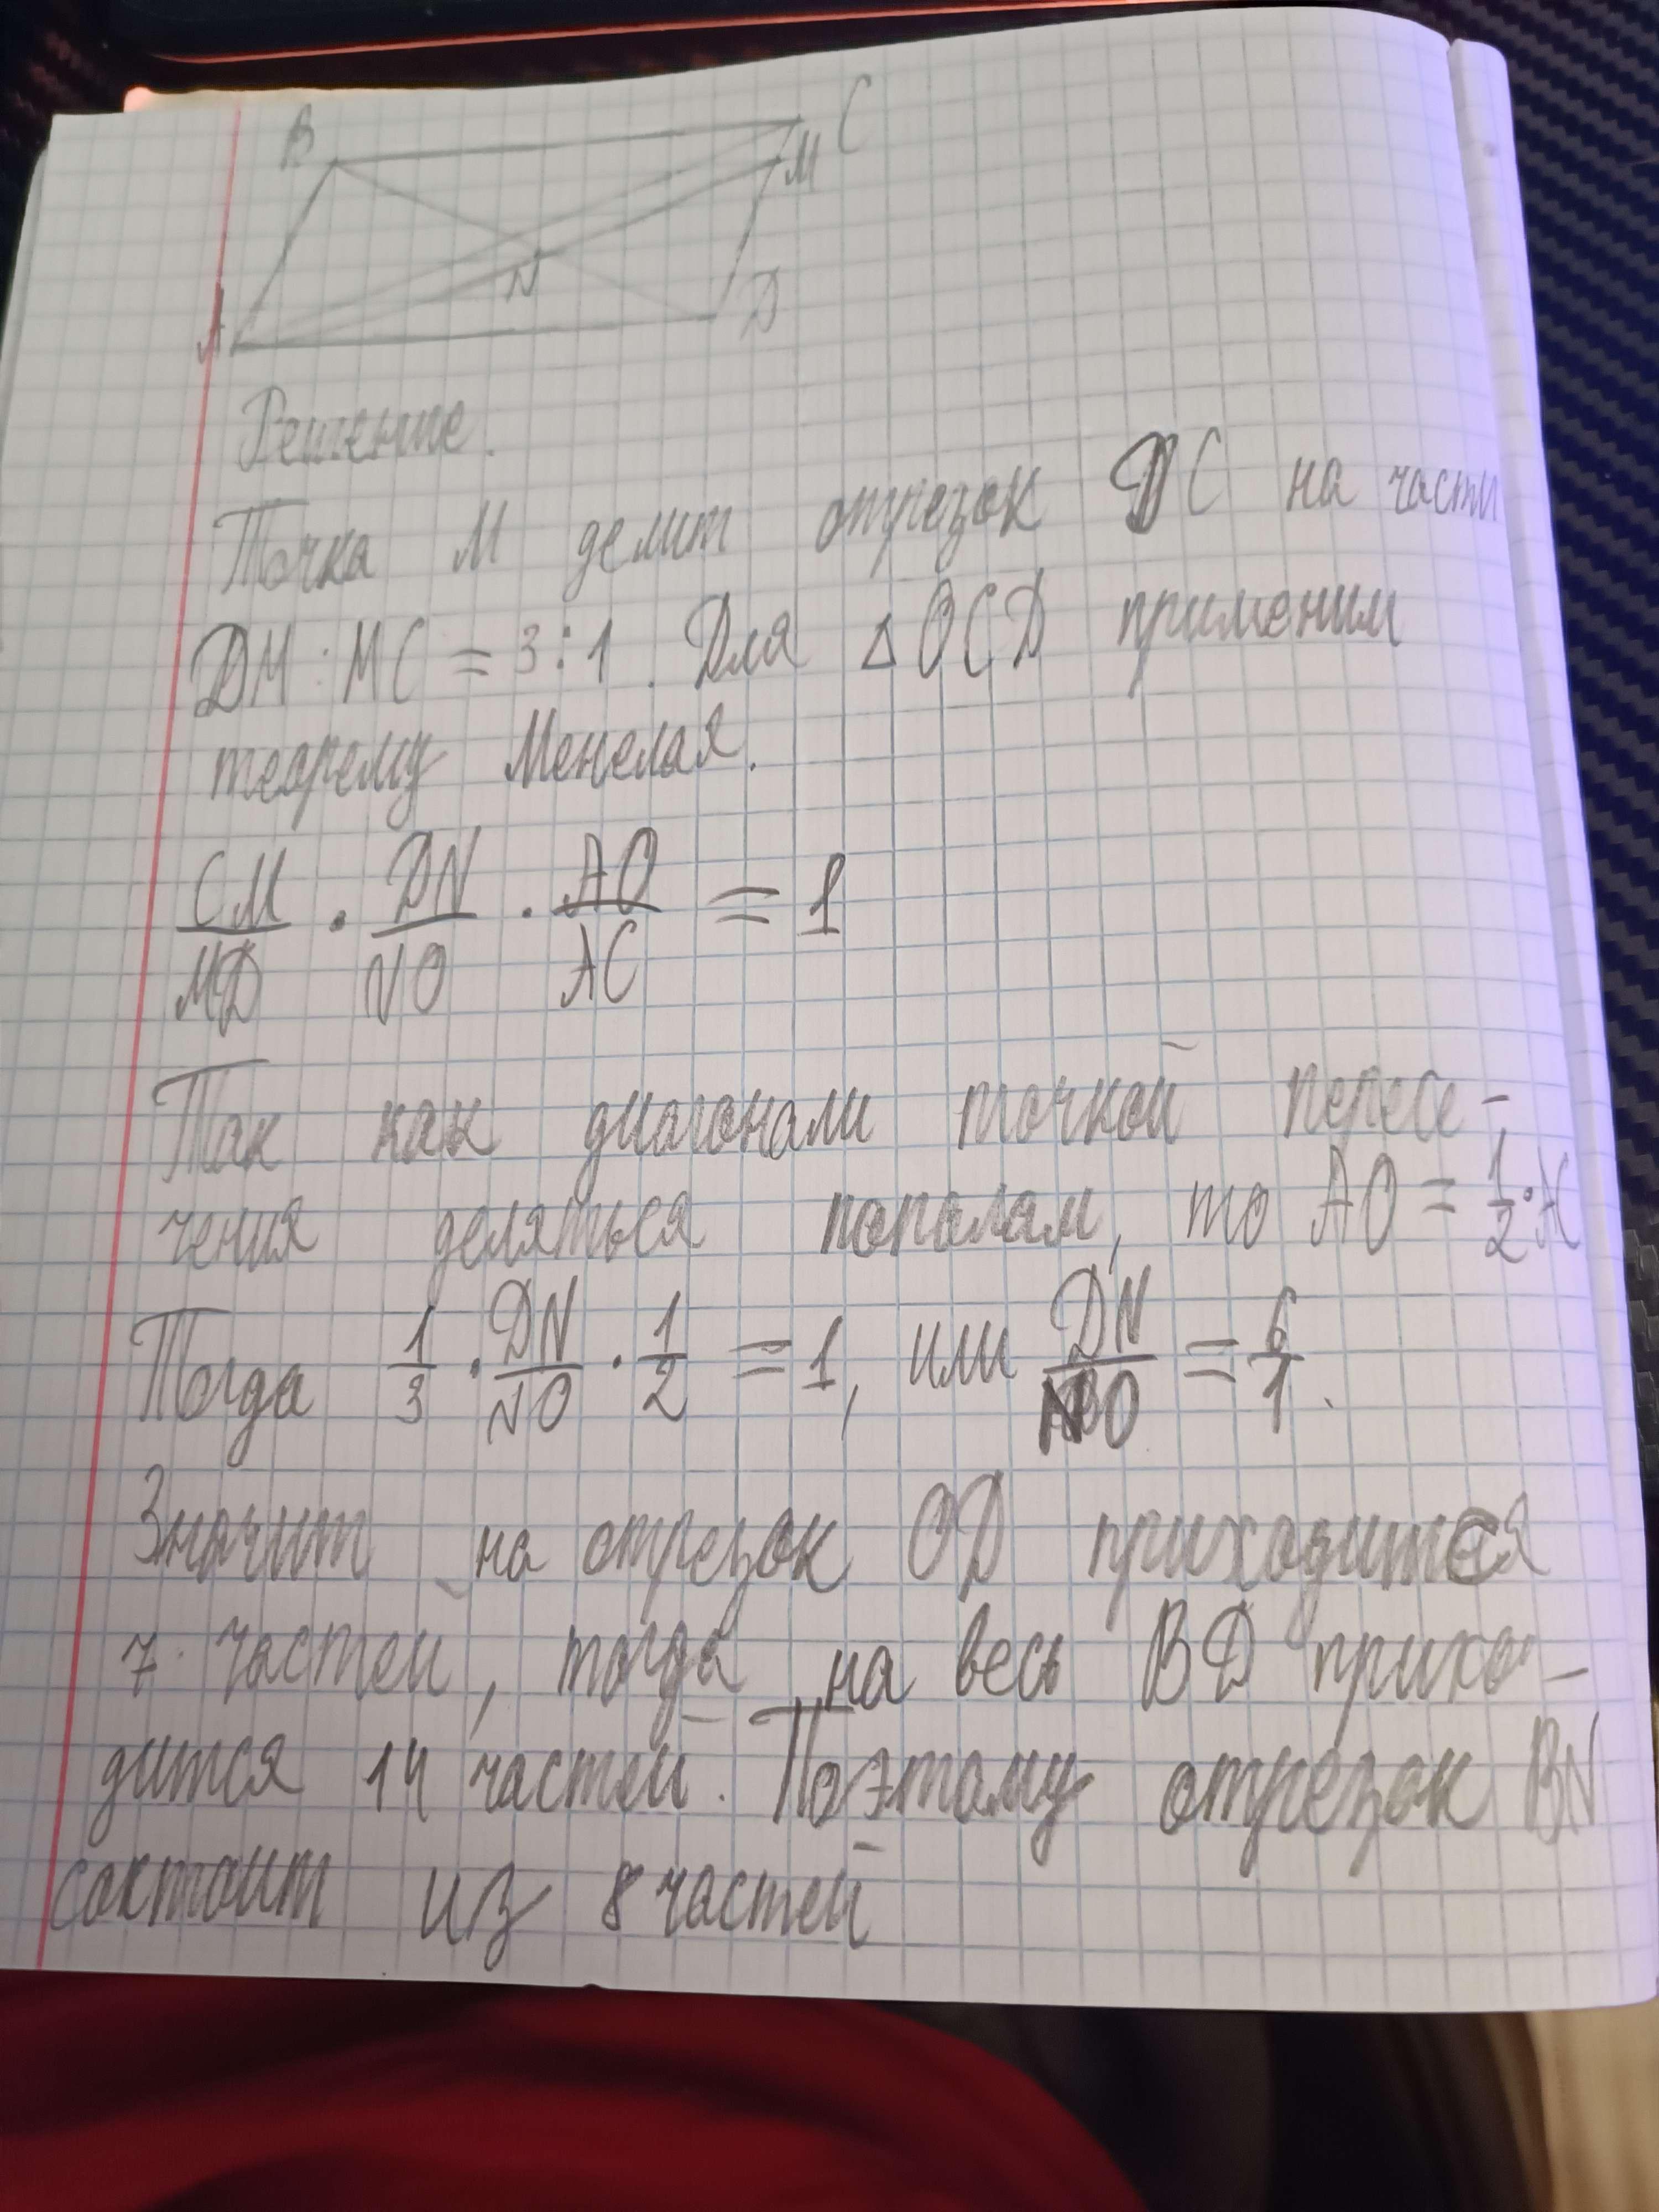 B
C
M
N
A
D
Решение.
Точка M делит отрезок DC на части
DM : MC = 3 : 1. Для △OCD применим
теорему Менелая.
CM/MD · DN/NO · AO/AC = 1
Так как диагонали точкой пересе-
чения деляться пополам, то AO = 1/2 · AC
Тогда 1/3 · DN/NO · 1/2 = 1, или DN/NO = 6/1.
Значит на отрезок OD приходится
7 частей, тогда на весь BD прихо-
дится 14 частей. Поэтому отрезок BN
состоит из 8 частей